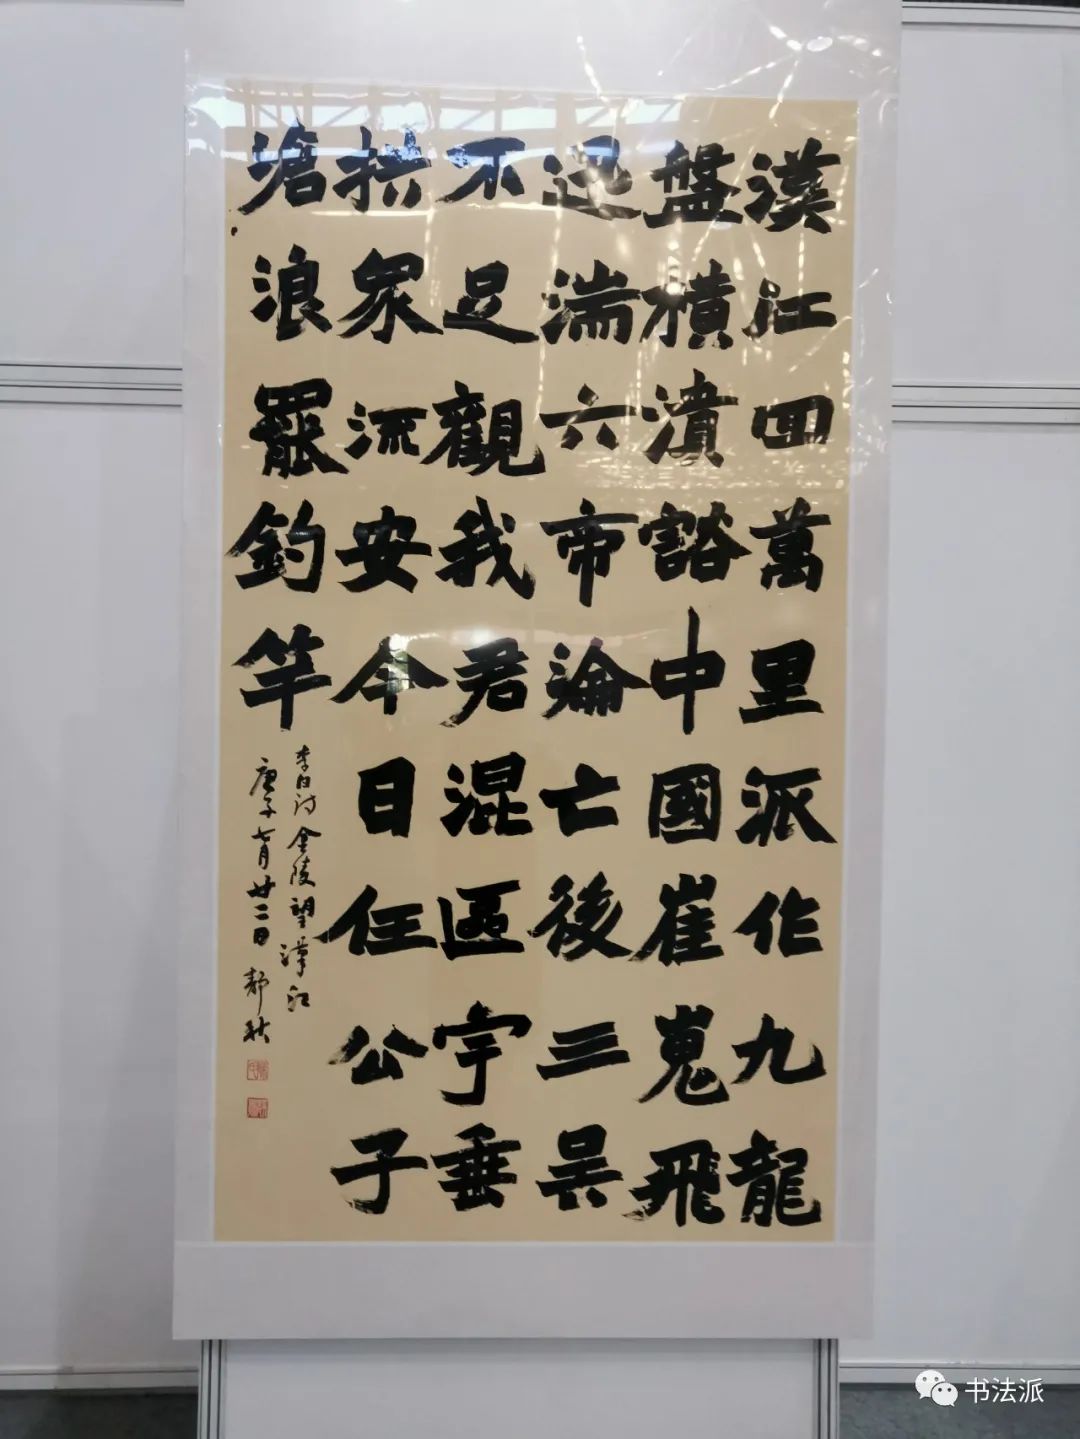 漢江回萬里派作九龍
盤橫潰豁中國崔嵬飛
迅湍六帝淪亡後三吴
不足觀我君混區宇垂
拱眾流安今日任公子
滄浪罷釣竿
李白诗金陵望漢江
庚子七月廿二日 靜秋
书法派